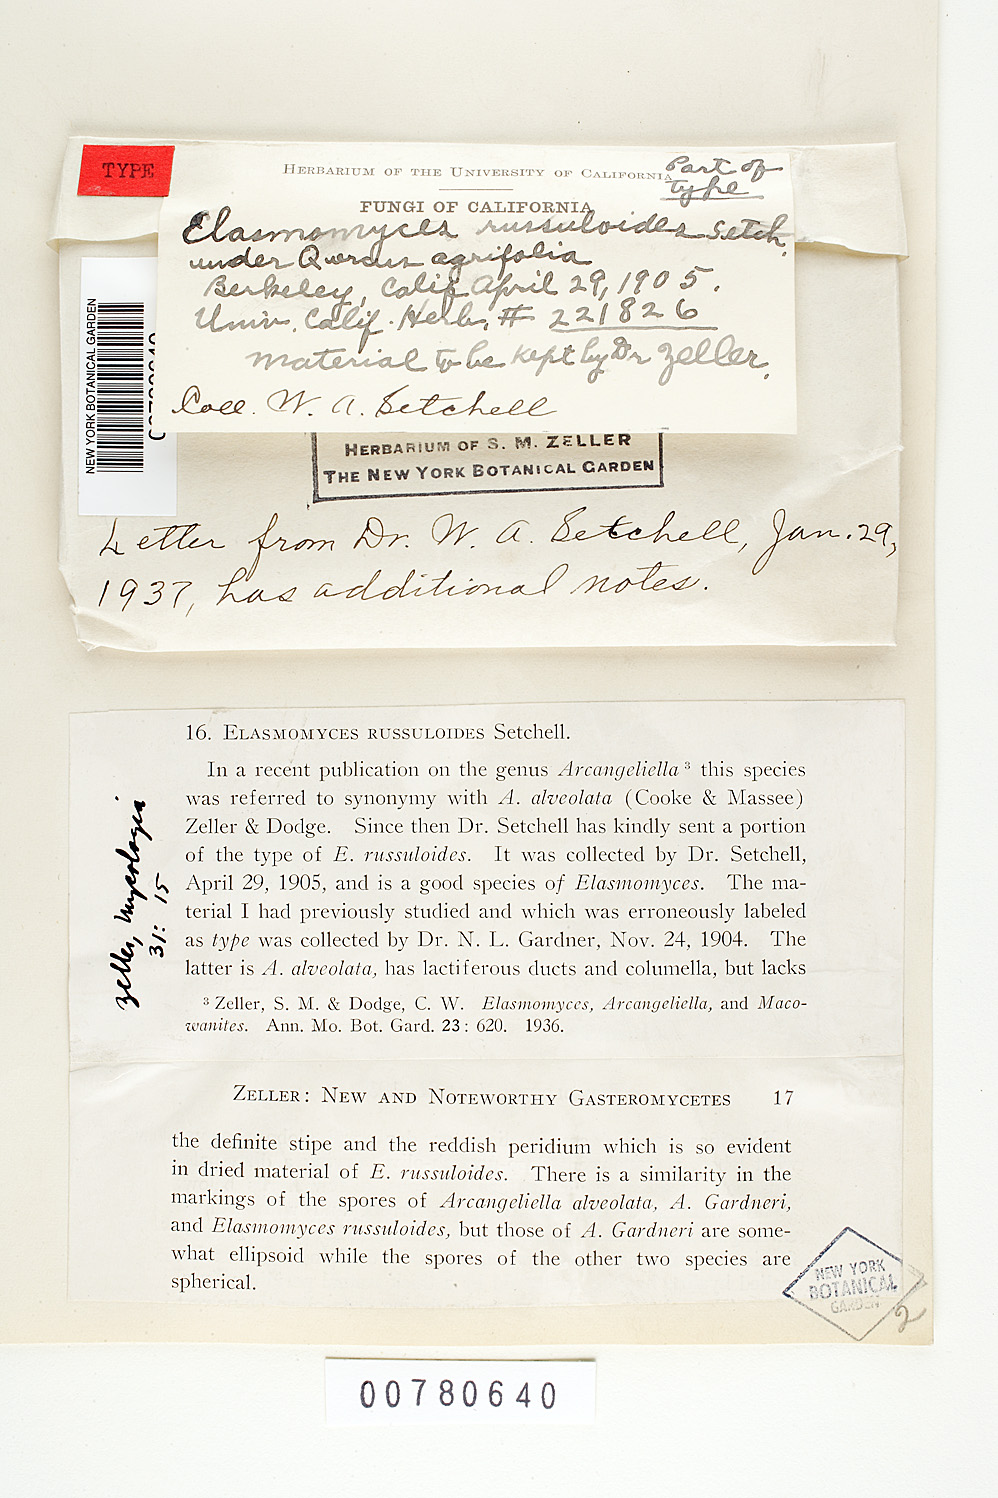 TYPE
Herbarium of the University of California
Part of
type
FUNGI OF CALIFORNIA
Elasmomyces russuloides Setch.
under Quercus agrifolia
Berkeley, Calif April 29, 1905.
Univ. Calif. Herb. # 221826
material to be kept by Dr Zeller.
Coll. W. A. Setchell
NEW YORK BOTANICAL GARDEN
HERBARIUM OF S. M. ZELLER
THE NEW YORK BOTANICAL GARDEN
Letter from Dr. W. A. Setchell, Jan. 29,
1937, has additional notes.
16. Elasmomyces russuloides Setchell.
In a recent publication on the genus Arcangeliella ³ this species
was referred to synonymy with A. alveolata (Cooke & Massee)
Zeller & Dodge. Since then Dr. Setchell has kindly sent a portion
of the type of E. russuloides. It was collected by Dr. Setchell,
April 29, 1905, and is a good species of Elasmomyces. The ma-
terial I had previously studied and which was erroneously labeled
as type was collected by Dr. N. L. Gardner, Nov. 24, 1904. The
latter is A. alveolata, has lactiferous ducts and columella, but lacks
³ Zeller, S. M. & Dodge, C. W. Elasmomyces, Arcangeliella, and Maco-
wanites. Ann. Mo. Bot. Gard. 23: 620. 1936.
Zeller, Mycologia
31: 15
Zeller: New and Noteworthy Gasteromycetes 17
the definite stipe and the reddish peridium which is so evident
in dried material of E. russuloides. There is a similarity in the
markings of the spores of Arcangeliella alveolata, A. Gardneri,
and Elasmomyces russuloides, but those of A. Gardneri are some-
what ellipsoid while the spores of the other two species are
spherical.
NEW YORK
BOTANICAL
GARDEN
2
00780640